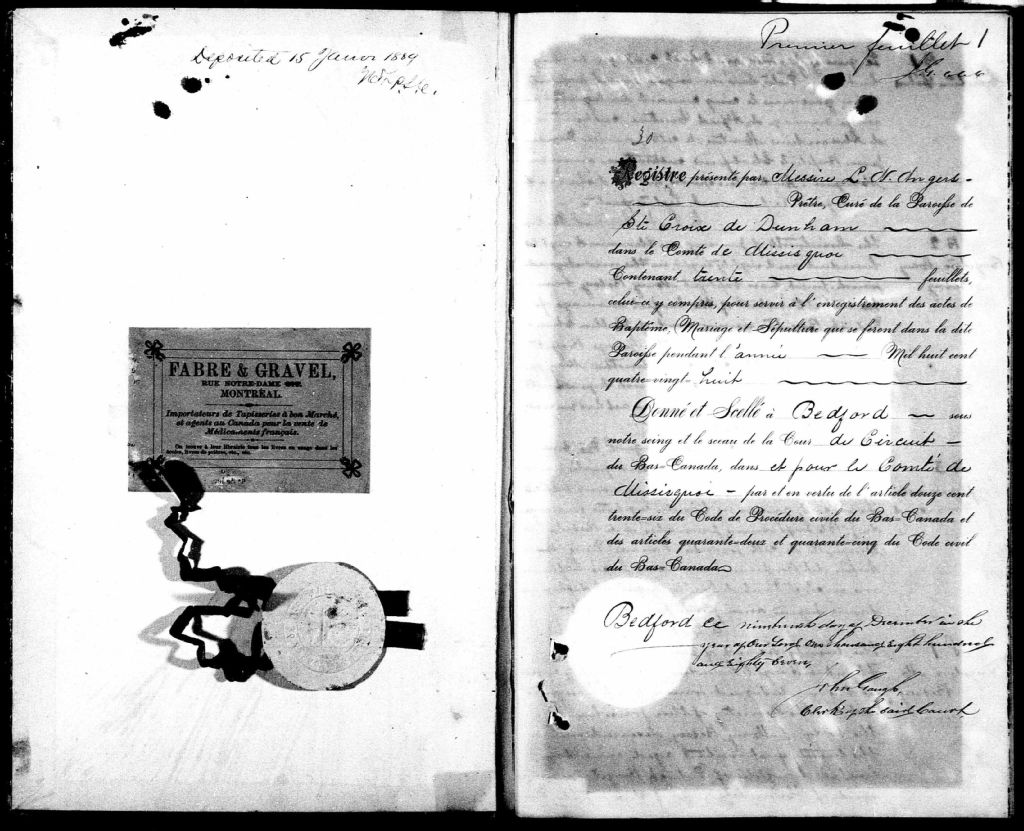 Deposited 15 Janvr 1889
FABRE & GRAVEL,
RUE NOTRE-DAME
MONTRÉAL.
Importateurs de Tapisseries à bon Marché,
et agents au Canada pour la vente de
Médicaments français.
On trouve à leur librairie tous les livres en usage dans les
écoles, livres de prières, etc., etc.
Premier feuillet 1
30
Registre présenté par Messire L. N. Angers -
Prêtre, Curé de la Paroisse de
Ste Croix de Dunham
dans le Comté de Missisquoi
Contenant trente feuillets,
celui-ci y compris, pour servir à l'enregistrement des actes de
Baptême, Mariage et Sépulture que se feront dans la dite
Paroisse pendant l'année Mil huit cent
quatre-vingt-huit
Donné et Scellé à Bedford sous
notre seing et le sceau de la Cour de Circuit -
du Bas-Canada, dans et pour le Comté de
Missisquoi - par et en vertu de l'article douze cent
trente-six du Code de Procédure civile du Bas-Canada et
des articles quarante-deux et quarante-cinq du Code civil
du Bas-Canada
Bedford ce nineteenth day of December in the
year of Our Lord One Thousand Eight hundred
and Eighty Seven,
John Gough,
Clerk of the said Court